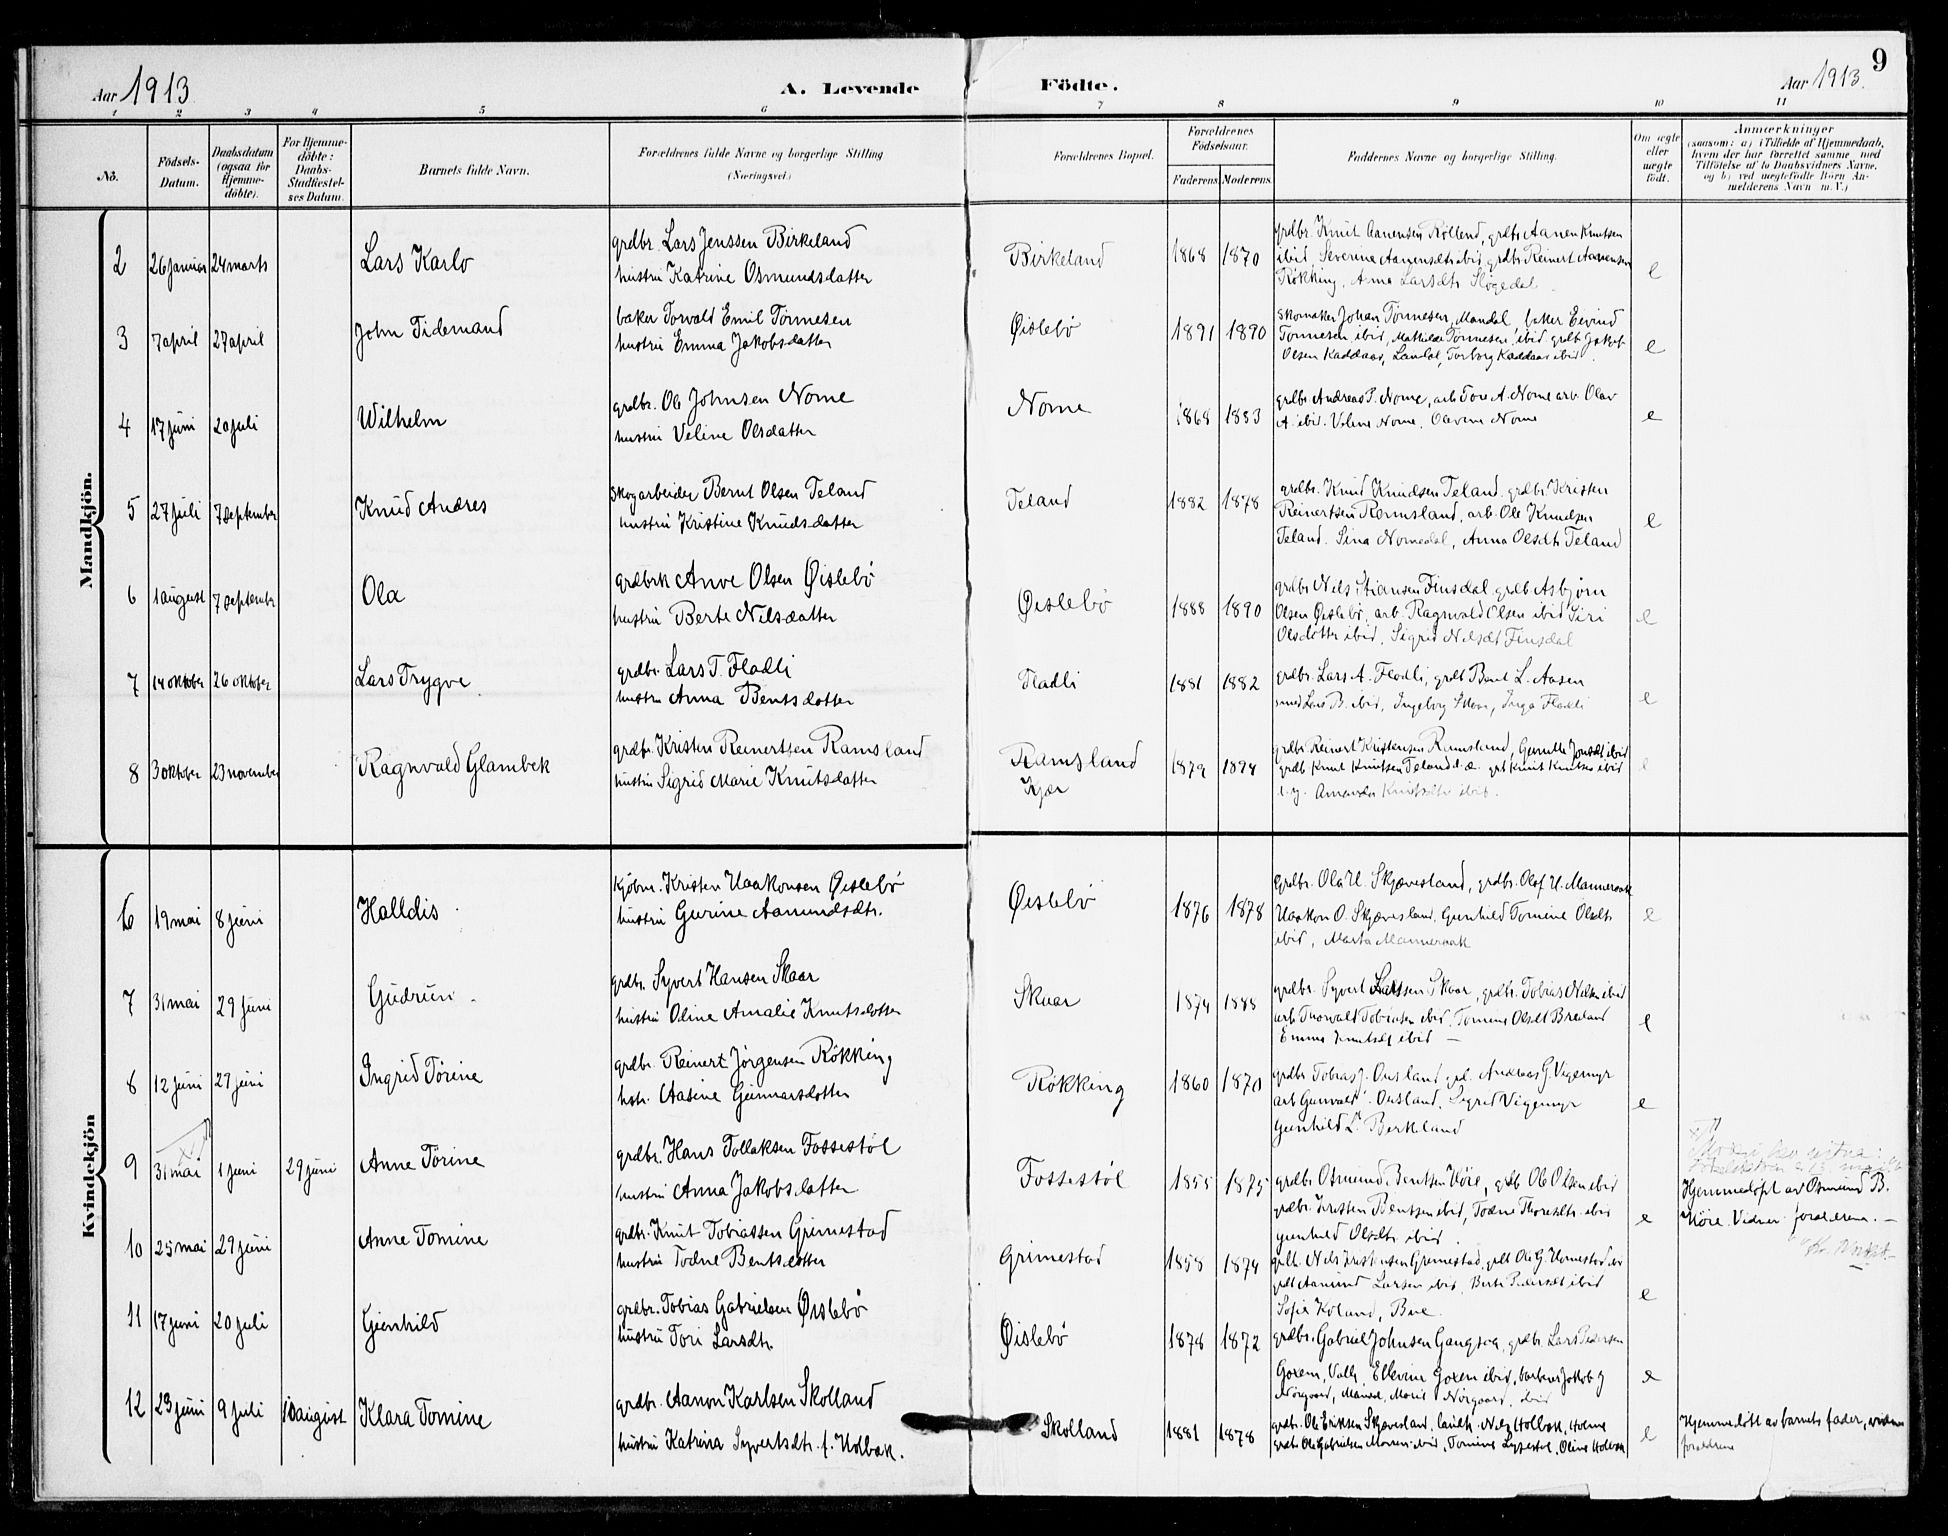 Aar 1913
A. Levende
Födte.
Aar 1913.
9
1 2 3 4 5 6 7 8 9 10 11
No.
Födsels-Datum.
Daabsdatum (ogsaa for Hjemme-döbte).
For Hjemme-döbte: Daabs-Stadfæstel-ses Datum.
Barnets fulde Navn.
Forældrenes fulde Navne og borgerlige Stilling (Næringsvei.)
Forældrenes Bopæl.
Forældrenes Födselsaar.
Faderens Moderens
Faddernes Navne og borgerlige Stilling.
Om ægte eller uægte født.
Anmærkninger
(saasom: a) i Tilfælde af Hjemmedaab, hvem der har forrettet samme med Tilföielse af to Daabsvidners Navne, og b) ved uægtefödte Börn An-melderens Navn m. V.)
Mandkjön.
2 26 januar 24 marts Lars Karlo
grdbr. Lars Jenssen Birkeland
hustru Katrine Osmundsdatter
Birkeland 1868 1870
grdbr. Knut Aanensen Rölland, grdbr Aanen Knutsen
ibid, Severine Aanensdtr ibid, grdbr Reinert Aanensen
Rökking, Anna Larsdtr Slögedal
e
3 7 april 27 april John Tidemand
baker Torvald Emil Tönnesen
hustru Emma Jakobsdatter
Øislebö 1891 1890
skomaker Johan Tönnesen, Mandal, baker Eivind
Tönnesen ibid, Mathilde Tönnesen ibid, grdb Jakob
Olsen Kaddaas, Laudal, Torborg Kaddaas ibid.
e
4 17 juni 20 juli Wilhelm
grdbr. Ole Johnsen Nome
hustru Veline Olsdatter
Nome 1868 1883
grdbr Andreas P. Nome, arb Tore A. Nome arb. Olav
A. ibid. Veline Nome, Olavine Nome
e
5 27 juli 7 september Knud Andres
Skogarbeider Bernt Olsen Teland
hustru Kristine Knudsdatter
Teland 1882 1878
grdbr. Knud Knudsen Teland. grdbr Kristen
Reinertsen Ramsland, arb. Ole Knudsen
Teland. Sina Nomedal, Anna Olsdtr Teland
e
6 1 august 7 september Ola
grdbrk Anve Olsen Øislebö
hustru Berte Nilsdatter
Øislebö 1888 1890
grdbr Nils Finsdal, grdb Asbjörn
Olsen Øislebö, arb. Ragnvald Olsen ibid Siri
Olsdotter ibid, Sigrid Nilsdt Finsdal
e
7 14 oktober 26 oktober Lars Trygve
grdbr. Lars T. Fladli
hustru Anna Bentsdotter
Fladli 1881 1882
grdbr. Lars A. Fladli, grdb Bent L. Aasen
smed Lars B. ibid, Ingeborg, Inga Fladli
e
8 3 oktober 23 november Ragnvald Glambek
grdbr. Kristen Reinertsen Ramsland
hustru Sigrid Marie Knutsdatter
Ramsland
Kjær
1879 1894
grdbr Reinert Kristensen Ramsland, Gunille Jonsdt ibid
grdb Knut Knutsen Teland d.æ. grb Knut Knutsen ibid
d. y. Amanda Knutsdtr ibid.
e
Kvindekjön
6 19 mai 8 juni Halldis
Kjöbm. Kristen Haakonsen Øislebö
hustru Gurine Aanundsdtr.
Øislebö 1876 1878
grdbr. Ola H. Skjævesland, grdbr. Olof H. Manneraak
Haakon O. Skjævesland, Gunhild Tomine Olsdtr
ibid, Marta Manneraak
e
7 31 mai 29 juni Gudrun
grdbr. Syvert Hansen Skaar
hustru Oline Amalie Knutsdotter
Skaar 1874 1888
grdbr. Syvert Larssen Skaar, grdbr. Tobias Nilsen ibid
arb Thorvald Tobiassen ibid, Tomine Olsdt Breland
Emma Knutsdt ibid —
e
8 12 juni 29 juni Ingrid Törine
grdbr. Reinert Jörgensen Rökking
hstr. Aasine Gunnarsdotter
Rökking 1860 1870
grdbr Tobias J. Ousland, gd. Andreas G Vigemyr
arb Gunvald Ousland, Sigrid Vigemyr
Gunhild L. Berkeland
e
9 31 mai 1 juni 29 juni Anne Törine
grdbr. Hans Tollaksen Fossestöl
hustru Anna Jakobsdatter
Fossestöl 1855 1875
grdbr Osmund Bentsen Höie, grdb Ole Olsen ibid
grdbr. Kristen Bentsen ibid, Todne Thoresdtr ibid
Gunhild Olsdtr ibid.
e
Hjemmedöpt av Osmund B.
Höie. Vidner: forældrene. —
10 25 mai 29 juni Anne Tomine
grdbr. Knut Tobiassen Grimestad
hustru Todne Bentsdotter
Grimestad 1858 1874
grdb. Nils Kristensen Grimestad, grdb Ole G. ibid
grdb Aanund Larsen ibid, Berte Pedersdt ibid
Sofie Koland, Bue.
e
11 17 juni 20 juli Gunhild
grdbr. Tobias Gabrielsen Øislebö
hustru Tori Larsdtr.
Øislebö 1878 1872
grdbr. Gabriel Johnsen Gangsaa, grdbr. Lars Pedersen
Goxem, Valle, Ellevine Goxem ibid, barber Jakob J
Nörgaard, Mandal, Marie Nörgaard, ibid
e
12 23 juni 9 juli 10 august Klara Tomine
grdbr. Aanon Karlsen Skolland
hustru Katrina Syvertsdtr. f. Holbæk.
Skolland 1881 1878
grdbr. Ole Eriksen Skjævesland, landh. Nils Holbæk, Holme
grdbr. Ole Gabrielsen ibid, Tomine, Oline Holbæk
e
Hjemmedöbt av barnets fader, vidner
forældrene